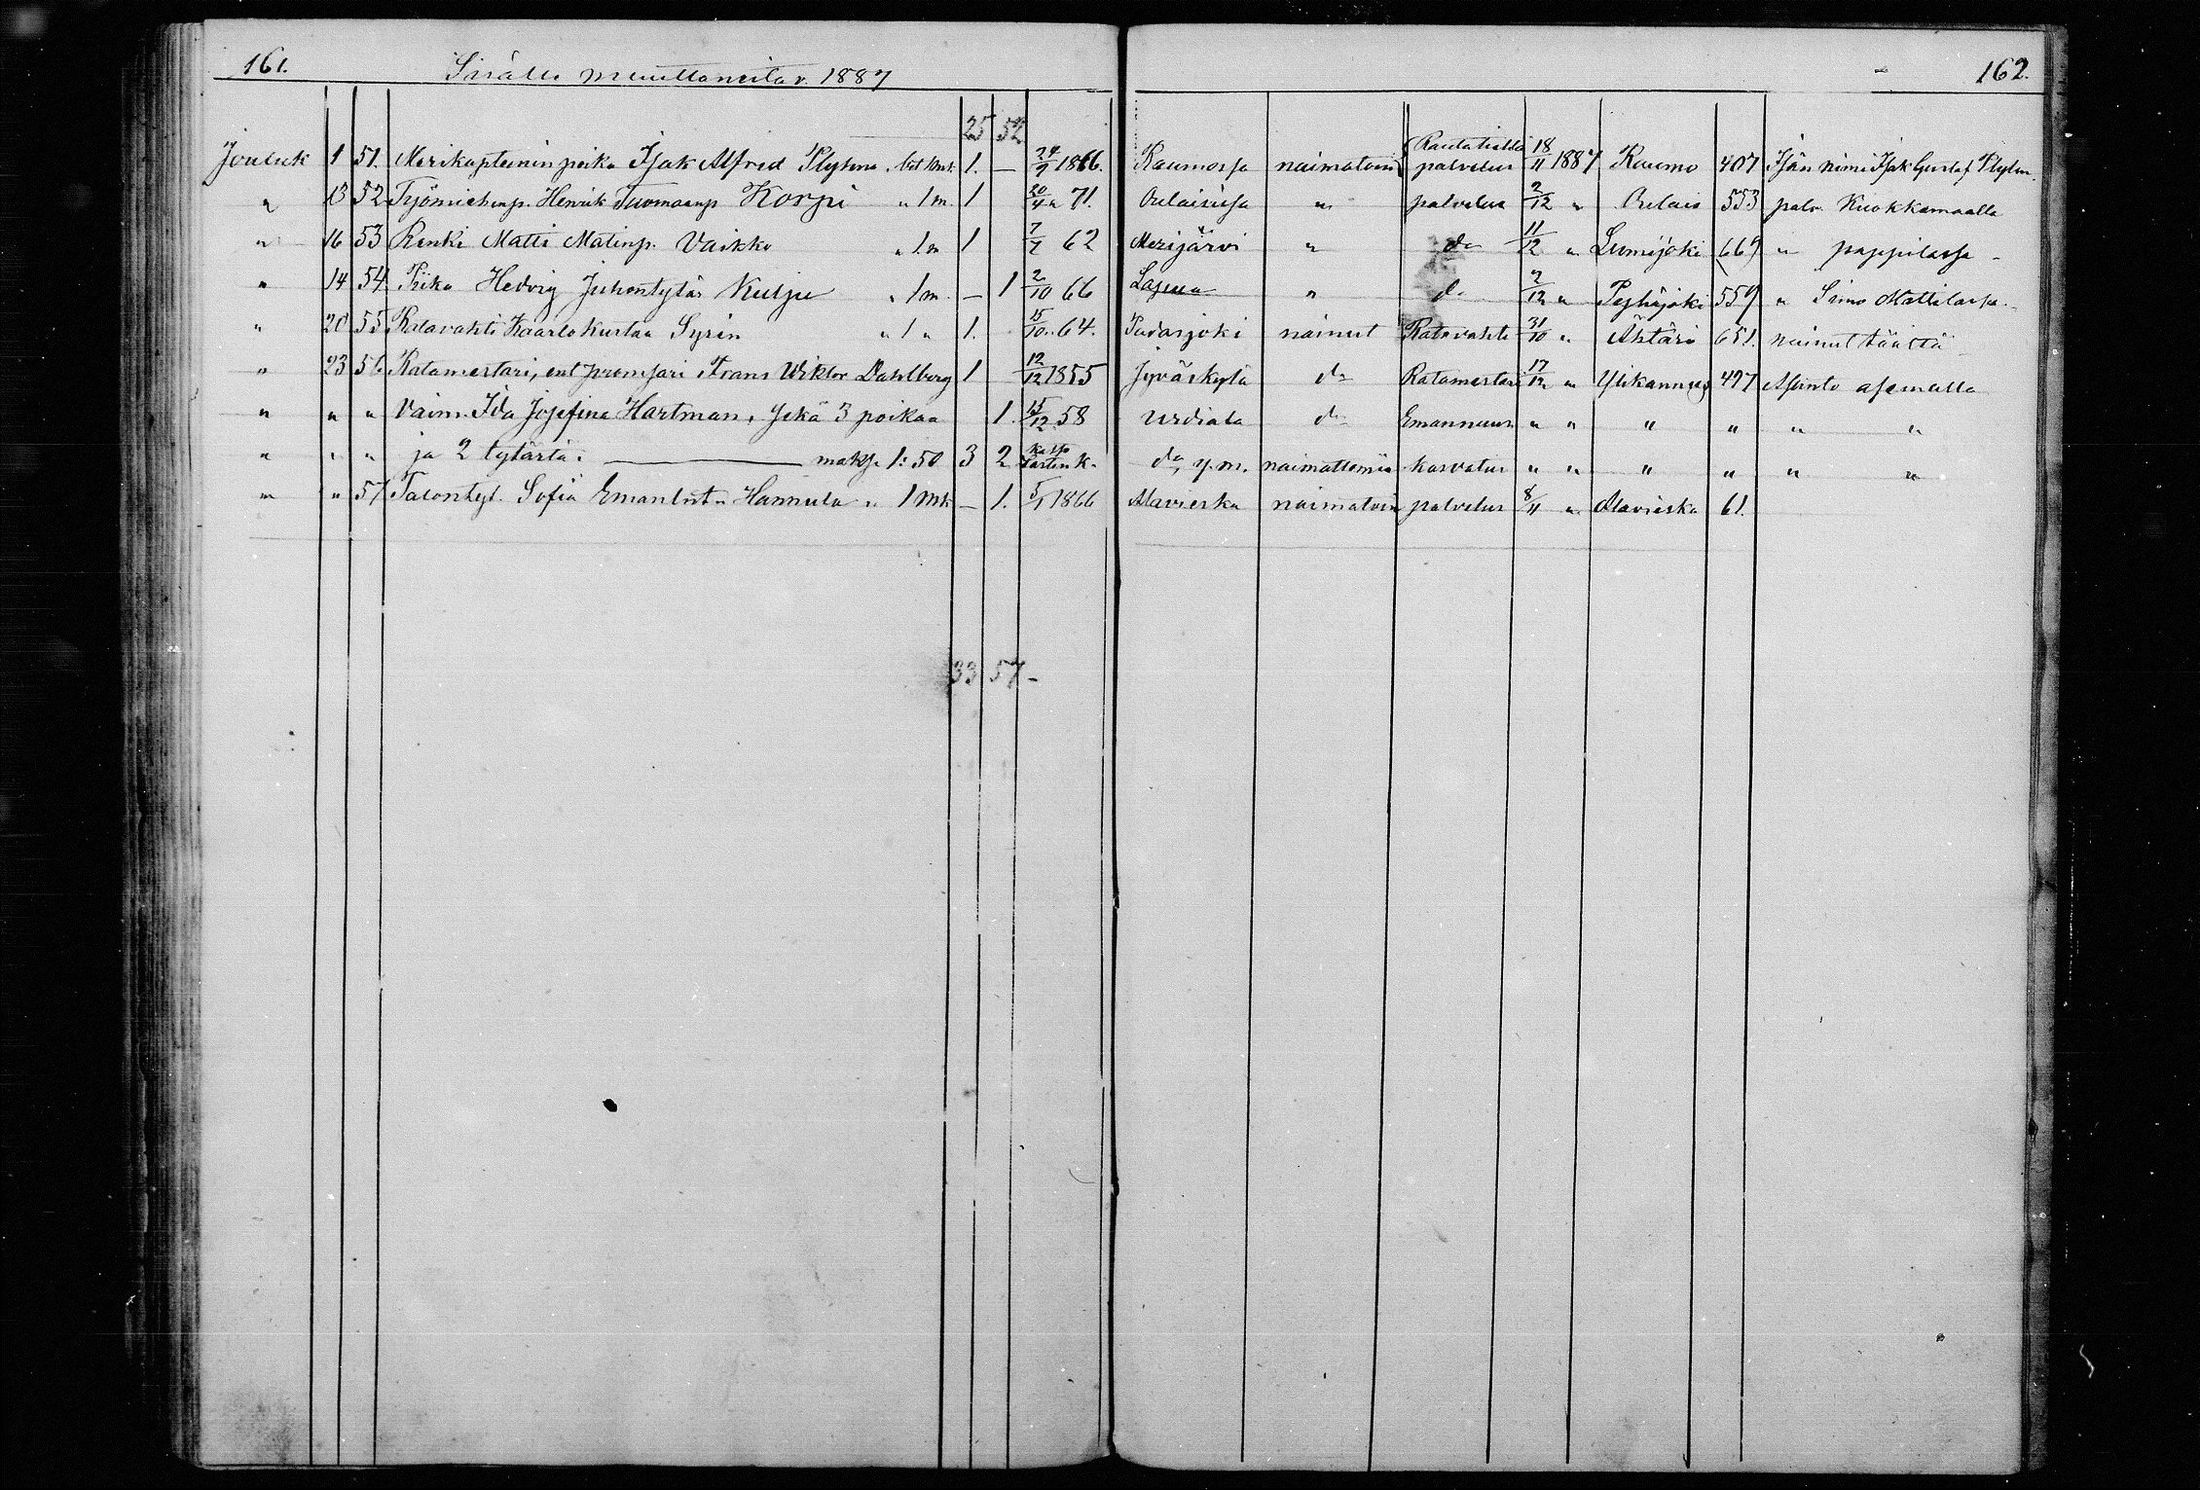 161. Sisälle muuttaneita v. 1887 162.
25 52
Jouluk 1 51. Merikapteenin poika Isak Alfred 1. — 24/9 1866. Raumossa naimatoin Rautatiellä palvelus 18/11 1887 Raumo 407 Isän nimi Isak Gustaf
" 13 52 Työmiehenp. Henrik Tuomaanp Korpi " 1 m. 1 71. Oulaisissa " palvelus 2/12 " Oulais 553 palv. Kuokkamaalla
" 16 53 Renki Matti Matinp. Vaikko " 1 m 1 7/7 62 Merijärvi " do 11/12 " Lumijoki 669 " pappilassa
" 14 54. Piika Hedvig Juhontytär " 1 m. — 1 2/10 66 " do 2/12 " Pyhäjoki 559 " Simo Mattilassa.
" 20 55 Ratavahti Kaarlo Kustaa Syrén " 1 " 1. 15/10 64. Padasjoki nainut Ratavahti 31/10 " Ähtäri 651. nainut täältä
" 23 56 Ratamestari, ent Frans Wiktor Dahlberg 1 12/12 1855 Jyväskylä do Ratamestari 17/12 " Ylikannus 497 asemalla
" " " Vaim. Ida Josefina Hartman, sekä 3 poikaa 1. 15/12 58 Urdiala do Emännuus " " " " " "
" " " ja 2 tytärtä: — maks. 1:50 3 2 katso lastenk. do, y.m. naimattomia kasvatus " " " " " "
" " 57 Talontyt. Sofia Emanlint. Hannula " 1 mk — 1. 5/1 1866 Alavieska naimatoin palvelus 8/11 " Alavieska 61.
33 57 -